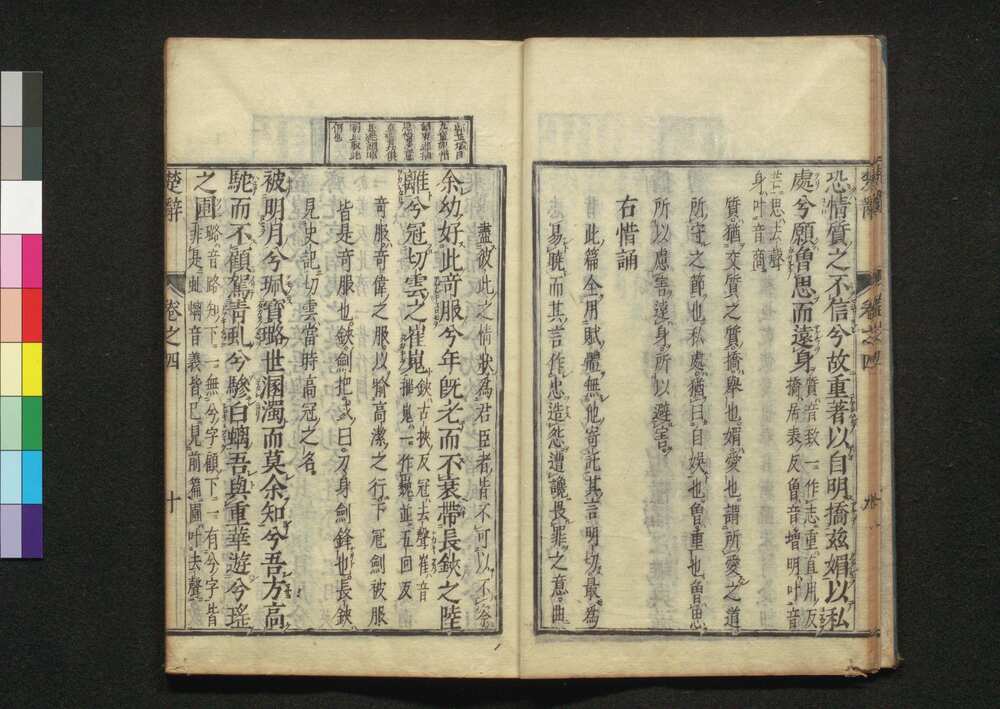 恐情質之不信兮故重著以自明撟玆媚以私
處兮願曾思而遠身質音致一作志重直用反
撟居表反曾音增明叶音
芒思去聲
身叶音商
質猶交質之質撟舉也媚愛也謂所愛之道
所守之節也私處猶曰自娛也曾重也曾思
所以慮害遠身所以避害
右惜誦
此篇全用賦體無他寄託其言明切最為
易曉而其言作忠造怨遭讒畏罪之意曲
盡彼此之情狀為君臣者皆不可以不察
余幼好此奇服兮年旣老而不衰帶長鋏之陸
離兮冠切雲之崔嵬鋏古挾反冠去聲崔音
摧嵬一作巍並五回反
奇服奇偉之服以喻高潔之行下冠劍被服
皆是奇服也鋏劍把或曰刀身劍鋒也長鋏
見史記切雲當時高冠之名
被明月兮珮寶璐世溷濁而莫余知兮吾方高
馳而不顧駕青虬兮驂白螭吾與重華遊兮瑤
之圃璐音路知下一無兮字顧下一有兮字皆
非是虬螭音義皆已見前篇圃叶去聲
楚辭
卷之四
十